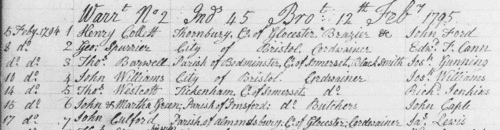 Warrt No 2 Ind 45 Brot 12th Feby 1795
5 Feby 1794 1 Henry Collett Thornbury, C. of Glocester Brazier &c John Ford
8 do 2 Geo: Spurrier City of Bristol Cordwainer Edwd F. Cann
do do 3 Thos Barwell Parish of Bedminster, C. of Somerset, Black Smith Jos: Gunning
10 do 4 John Williams City of Bristol Cordwainer Jos: Williams
14 do 5 Thos Westcott Tickenham, C. of Somerset do Richd Jenkins
15 do 6 John & Martha Green; Parish of Pensford; do Butchers John Caple
17 do 7 John Culford Parish of Almondsbury; C. of Glocester; Cordwainer Jas Lewis